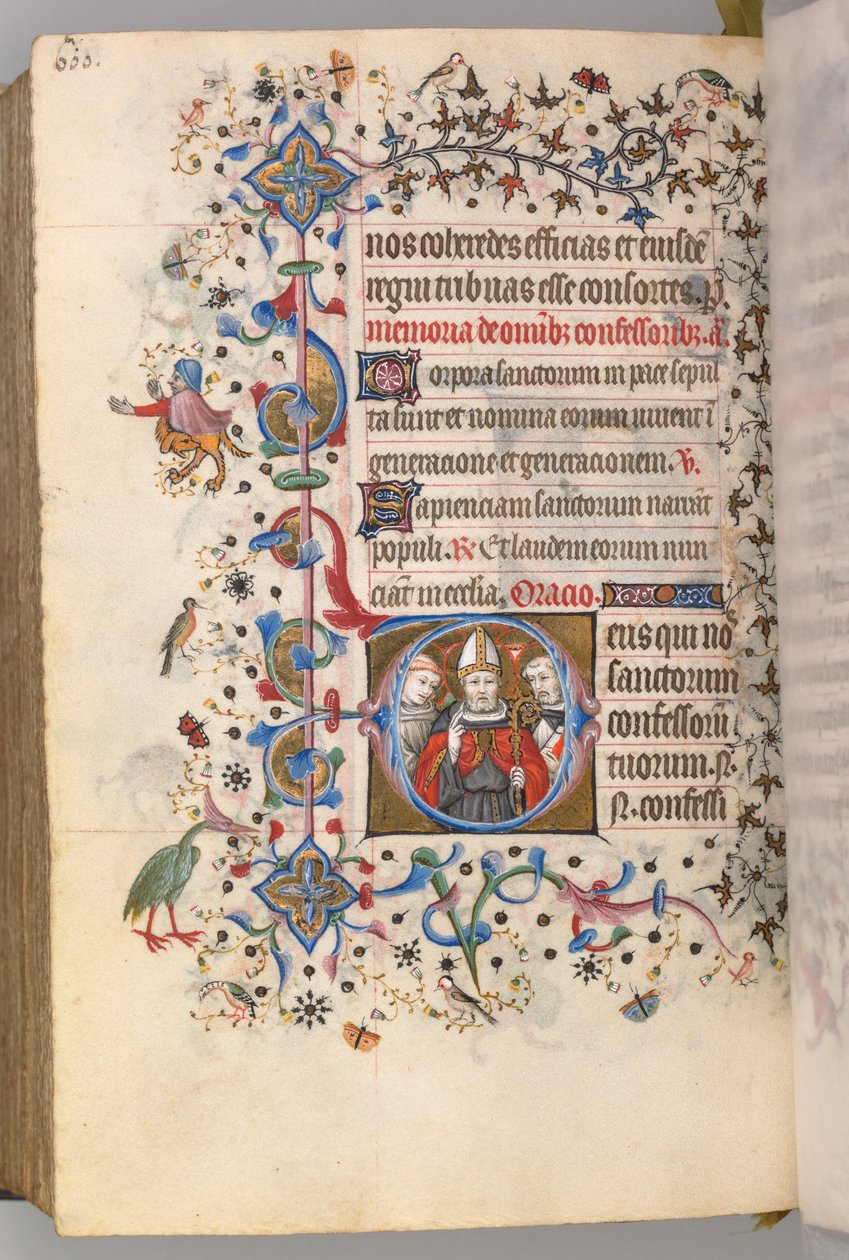 nos coheredes efficias et eiusdē
regni tribuas esse consortes. p̄.
memoria de omnibꝫ confessoribꝫ. a͞.
Corpora sanctorum in pace sepul
ta sunt et nomina eorum uiuent ī
generacione et generacionem. V̄.
Sapienciam sanctorum narrāt
populi. R̄ Et laudem eorum nun
ciāt in eccl̄ia. Oracio.
Deus qui nos
sanctorum
confessorū
tuorum. N.
N. confessi